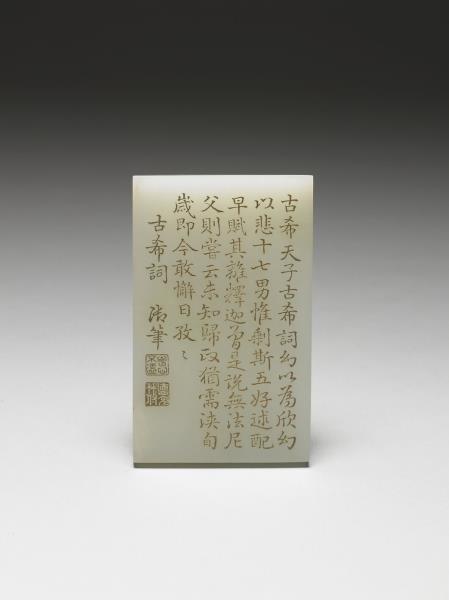 古希天子古希詞幻以為欣幻
以悲十七男惟剩斯五好逑配
早賦其離釋迦曾是說無法尼
父則嘗云未知歸政猶需浹旬
歲即今敢懈日孜〻
古希詞 御筆